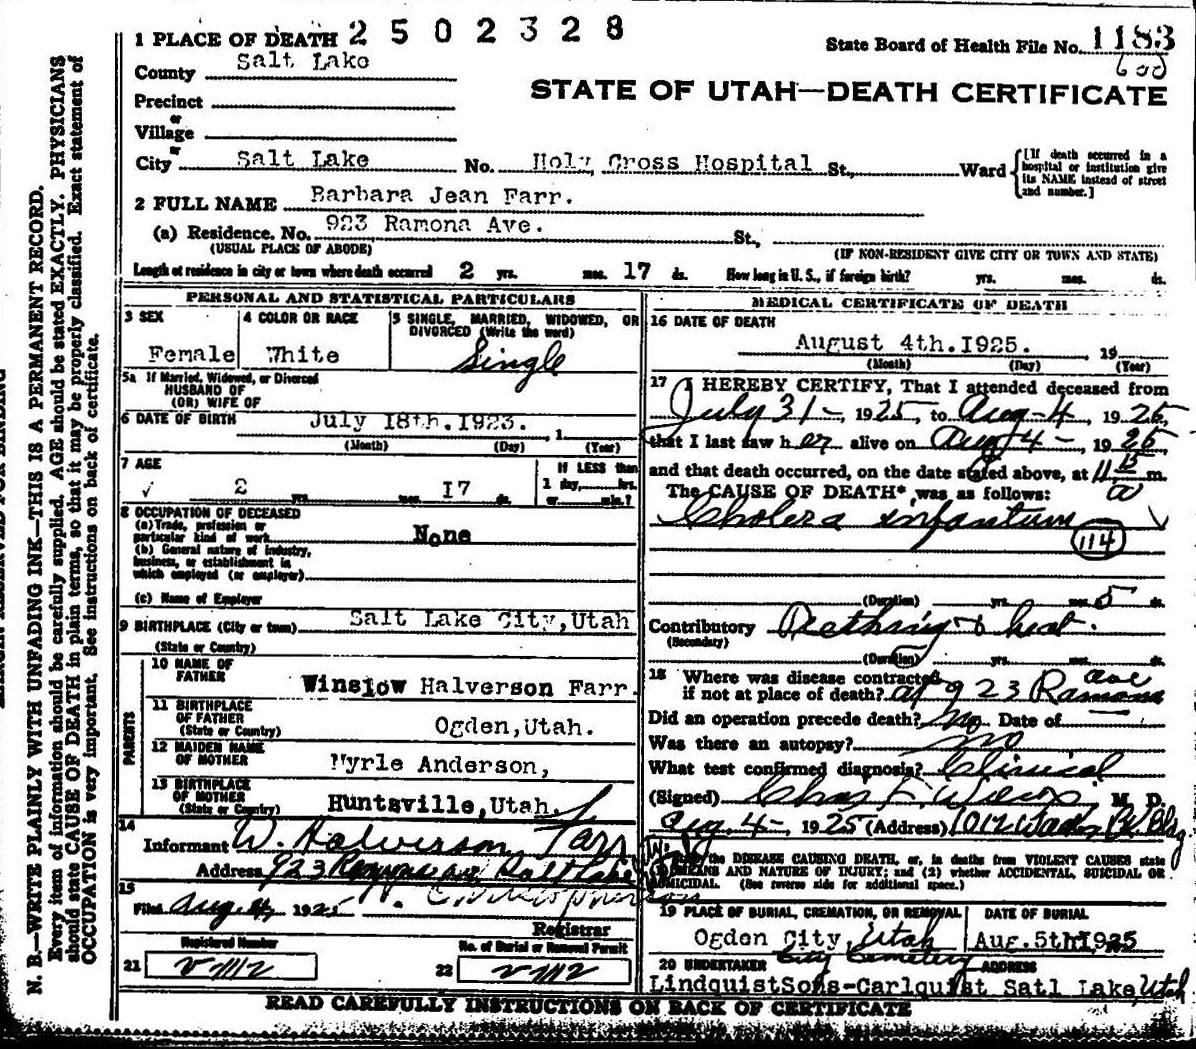 1 PLACE OF DEATH 2 5 0 2 3 2 8
State Board of Health File No. 1183
County Salt Lake
600
STATE OF UTAH—DEATH CERTIFICATE
Precinct
or
Village
or
City Salt Lake No. Holy Cross Hospital St., Ward
[If death occurred in a hospital or institution give its NAME instead of street and number.]
2 FULL NAME Barbara Jean Farr.
(a) Residence. No. 923 Ramona Ave. St.,
(USUAL PLACE OF ABODE) (IF NON-RESIDENT GIVE CITY OR TOWN AND STATE)
Length of residence in city or town where death occurred 2 yrs. mos. 17 ds. How long in U. S., if foreign birth? yrs. mos. ds.
PERSONAL AND STATISTICAL PARTICULARS
3 SEX
Female
4 COLOR OR RACE
White
5 SINGLE, MARRIED, WIDOWED, OR
DIVORCED (Write the word)
Single
5a If Married, Widowed, or Divorced
HUSBAND OF
(OR) WIFE OF
6 DATE OF BIRTH July 18th.1923. , 1
(Month) (Day) (Year)
7 AGE
2 yrs. mos. 17 ds.
IF LESS than
1 day, hrs.
or min.?
8 OCCUPATION OF DECEASED
(a) Trade, profession or
particular kind of work None
(b) General nature of industry,
business, or establishment in
which employed (or employer)
(c) Name of Employer
9 BIRTHPLACE (City or town) Salt Lake City,Utah
(State or Country)
PARENTS
10 NAME OF
FATHER Winslow Halverson Farr.
11 BIRTHPLACE
OF FATHER
(State or Country) Ogden,Utah.
12 MAIDEN NAME
OF MOTHER Myrle Anderson,
13 BIRTHPLACE
OF MOTHER
(State or Country) Huntsville,Utah.
14
Informant W. Halverson Farr
Address 923 Ramona ave Salt Lake
15
Filed Aug 4, 1925
Registrar
Registered Number
21
No. of Burial or Removal Permit
22
MEDICAL CERTIFICATE OF DEATH
16 DATE OF DEATH
August 4th.1925. , 19
(Month) (Day) (Year)
17 I HEREBY CERTIFY, That I attended deceased from
July 31 -, 1925, to Aug - 4, 1925,
that I last saw her alive on Aug 4 -, 1925,
and that death occurred, on the date stated above, at 11 15 a m.
The CAUSE OF DEATH*, was as follows:
Cholera infantum
114
(Duration) yrs. mos. 5 ds.
Contributory Teething & heat.
(Secondary)
(Duration) yrs. mos. ds.
18 Where was disease contracted
if not at place of death? at 923 Ramona ave
Did an operation precede death? No Date of
Was there an autopsy? no
What test confirmed diagnosis? Clinical
(Signed) Chas F. Wilcox, M. D.
Aug. 4-, 1925 (Address) 1012 Walker Bk. Bldg
the DISEASE CAUSING DEATH, or, in deaths from VIOLENT CAUSES state
MEANS AND NATURE OF INJURY; and (2) whether ACCIDENTAL, SUICIDAL OR
HOMICIDAL. (See reverse side for additional space.)
19 PLACE OF BURIAL, CREMATION, OR REMOVAL
Ogden City, Utah
City Cemetery
DATE OF BURIAL
Aug.5th 1925
20 UNDERTAKER ADDRESS
LindquistSons-Carlquist Satl Lake, Utah
READ CAREFULLY INSTRUCTIONS ON BACK OF CERTIFICATE
N. B.—WRITE PLAINLY WITH UNFADING INK—THIS IS A PERMANENT RECORD.
Every item of information should be carefully supplied. AGE should be stated EXACTLY. PHYSICIANS
should state CAUSE OF DEATH in plain terms, so that it may be properly classified. Exact statement of
OCCUPATION is very important. See instructions on back of certificate.